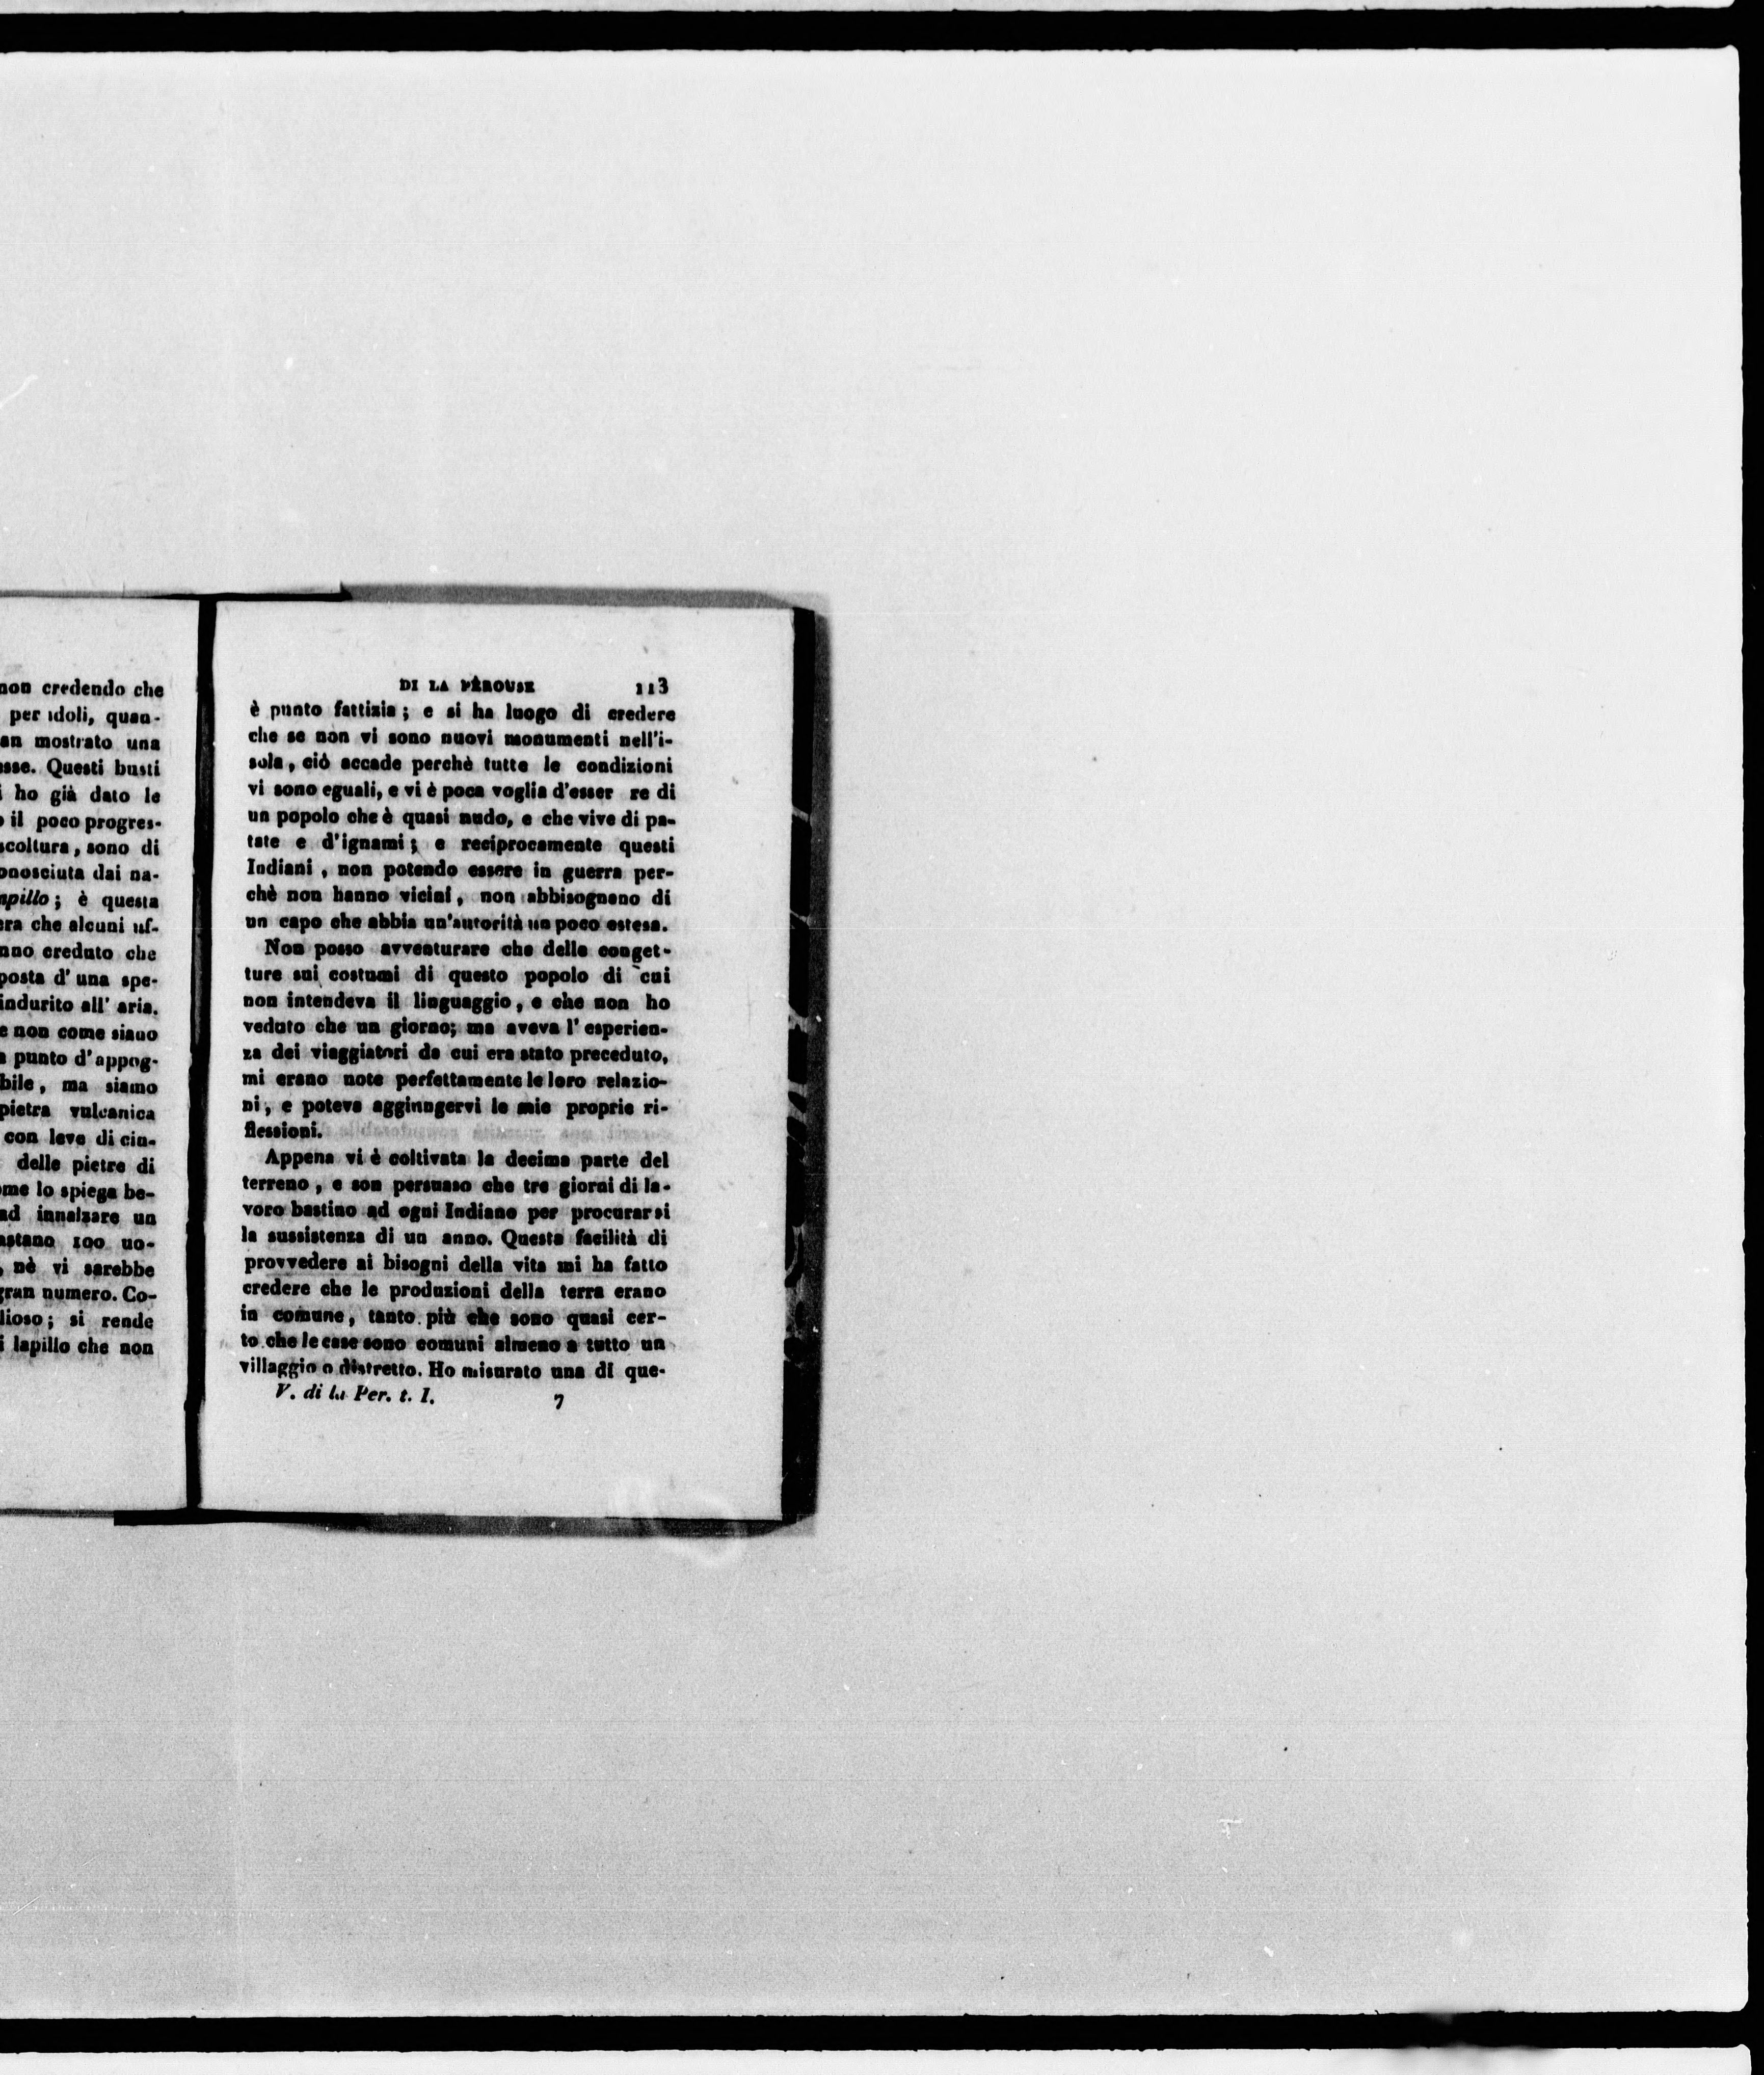 non credendo che
per idoli, quan-
an mostrato una
sse. Questi busti
ho già dato le
il poco progres-
scoltura, sono di
onosciuta dai na-
pillo; è questa
ra che alcuni uf-
nno creduto che
posta d' una spe-
indurito all' aria.
e non come siano
punto d' appog-
bile, ma siamo
pietra vulcanica
con leve di cin-
delle pietre di
me lo spiega be-
ad innalzare un
stano 100 uo-
, nè vi sarebbe
gran numero. Co-
lioso; si rende
i lapillo che non
DI LA PÉROUSE 113
è punto fattizia; e si ha luogo di credere
che se non vi sono nuovi monumenti nell'i-
sola, ciò accade perchè tutte le condizioni
vi sono eguali, e vi è poca voglia d'esser re di
un popolo che è quasi nudo, e che vive di pa-
tate e d'ignami; e reciprocamente questi
Indiani, non potendo essere in guerra per-
chè non hanno vicini, non abbisognano di
un capo che abbia un'autorità un poco estesa.
Non posso avventurare che delle conget-
ture sui costumi di questo popolo di cui
non intendeva il linguaggio, e che non ho
veduto che un giorno; ma aveva l' esperien-
za dei viaggiatori da cui era stato preceduto,
mi erano note perfettamente le loro relazio-
ni, e poteva aggiungervi le mie proprie ri-
flessioni.
Appena vi è coltivata la decima parte del
terreno, e son persuaso che tre giorni di la-
voro bastino ad ogni Indiano per procurarsi
la sussistenza di un anno. Questa facilità di
provvedere ai bisogni della vita mi ha fatto
credere che le produzioni della terra erano
in comune, tanto più che sono quasi cer-
to che le case sono comuni almeno a tutto un
villaggio o distretto. Ho misurato una di que-
V. di la Per. t. I. 7